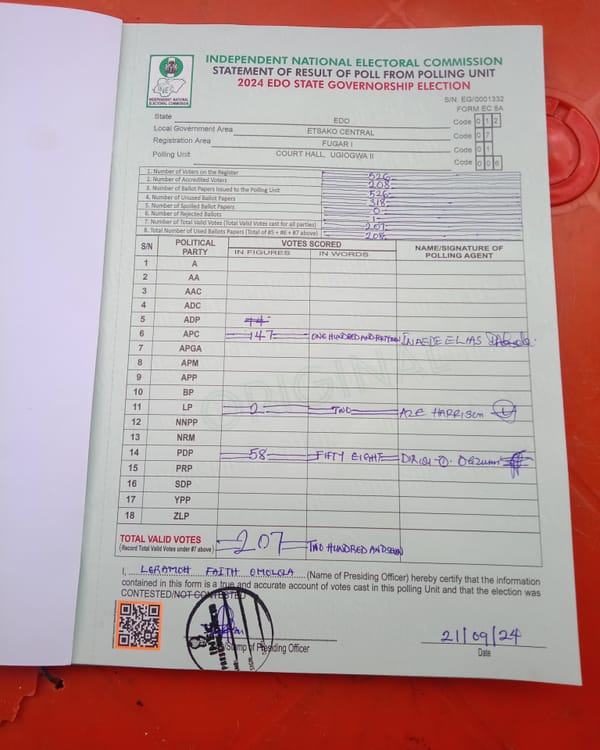 INDEPENDENT NATIONAL ELECTORAL COMMISSION
STATEMENT OF RESULT OF POLL FROM POLLING UNIT
2024 EDO STATE GOVERNORSHIP ELECTION
INEC
INDEPENDENT NATIONAL
ELECTORAL COMMISSION
S/N: EG/0001332
FORM EC 8A
State EDO Code 0 1 2
Local Government Area ETSAKO CENTRAL Code 0 7
Registration Area FUGAR I Code 0 1
Polling Unit COURT HALL, UGIOGWA II Code 0 0 6
1. Number of Voters on the Register 526
2. Number of Accredited Voters 208
3. Number of Ballot Papers Issued to the Polling Unit 526
4. Number of Unused Ballot Papers 318
5. Number of Spoiled Ballot Papers 0
6. Number of Rejected Ballots 1
7. Number of Total Valid Votes (Total Valid Votes cast for all parties) 207
8. Total Number of Used Ballots Papers (Total of #5 + #6 + #7 above) 208
S/N POLITICAL PARTY VOTES SCORED NAME/SIGNATURE OF POLLING AGENT
IN FIGURES IN WORDS
1 A
2 AA
3 AAC
4 ADC
5 ADP
6 APC 147 ONE HUNDRED AND INAEDE ELIAS
7 APGA
8 APM
9 APP
10 BP
11 LP 2 TWO AZE HARRISON
12 NNPP
13 NRM
14 PDP 58 FIFTY EIGHT
15 PRP
16 SDP
17 YPP
18 ZLP
ORIGINAL
TOTAL VALID VOTES 207 TWO HUNDRED AND SEVEN
(Record Total Valid Votes under #7 above)
I, LERAMOH FAITH OMOLOLA (Name of Presiding Officer) hereby certify that the information
contained in this form is a true and accurate account of votes cast in this polling Unit and that the election was
CONTESTED/NOT CONTESTED
Stamp of Presiding Officer
21/09/24
Date